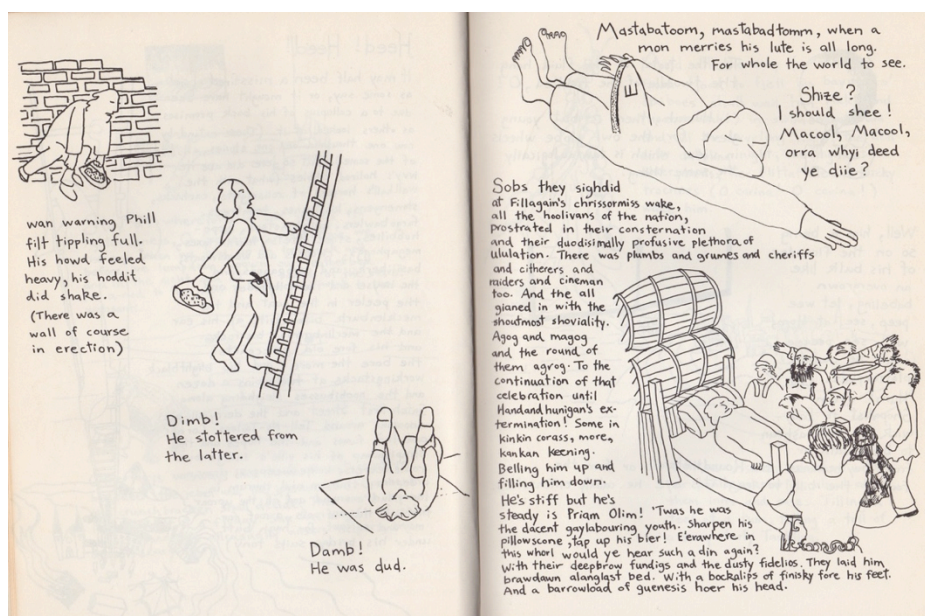 wan warning Phill
filt tippling full.
His howd feeled
heavy, his hoddit
did shake.
(There was a
wall of course
in erection)
Dimb!
He stottered from
the latter.
Damb!
He was dud.
Mastabatoom, mastabadtomm, when a
mon merries his lute is all long.
For whole the world to see.
Shize?
I should shee!
Macool, Macool,
orra whyi deed
ye diie?
Sobs they sighdid
at Fillagain's chrissormiss wake,
all the hoolivans of the nation,
prostrated in their consternation
and their duodisimally profusive plethora of
ululation. There was plumbs and grumes and cheriffs
and citherers and
raiders and cineman
too. And the all
gianed in with the
shoutmost shoviality.
Agog and magog
and the round of
them agrog. To the
continuation of that
celebration until
Handandhunigan's ex-
termination! Some in
kinkin corass, more,
kankan keening.
Belling him up and
filling him down.
He's stiff but he's
steady is Priam Olim! 'Twas he was
the dacent gaylabouring youth. Sharpen his
pillowscone, tap up his bier! E'erawhere in
this whorl would ye hear such a din again?
With their deepbrow fundigs and the dusty fidelios. They laid him
brawdawn alanglast bed. With a bockalips of finisky fore his feet.
And a barrowload of guenesis hoer his head.